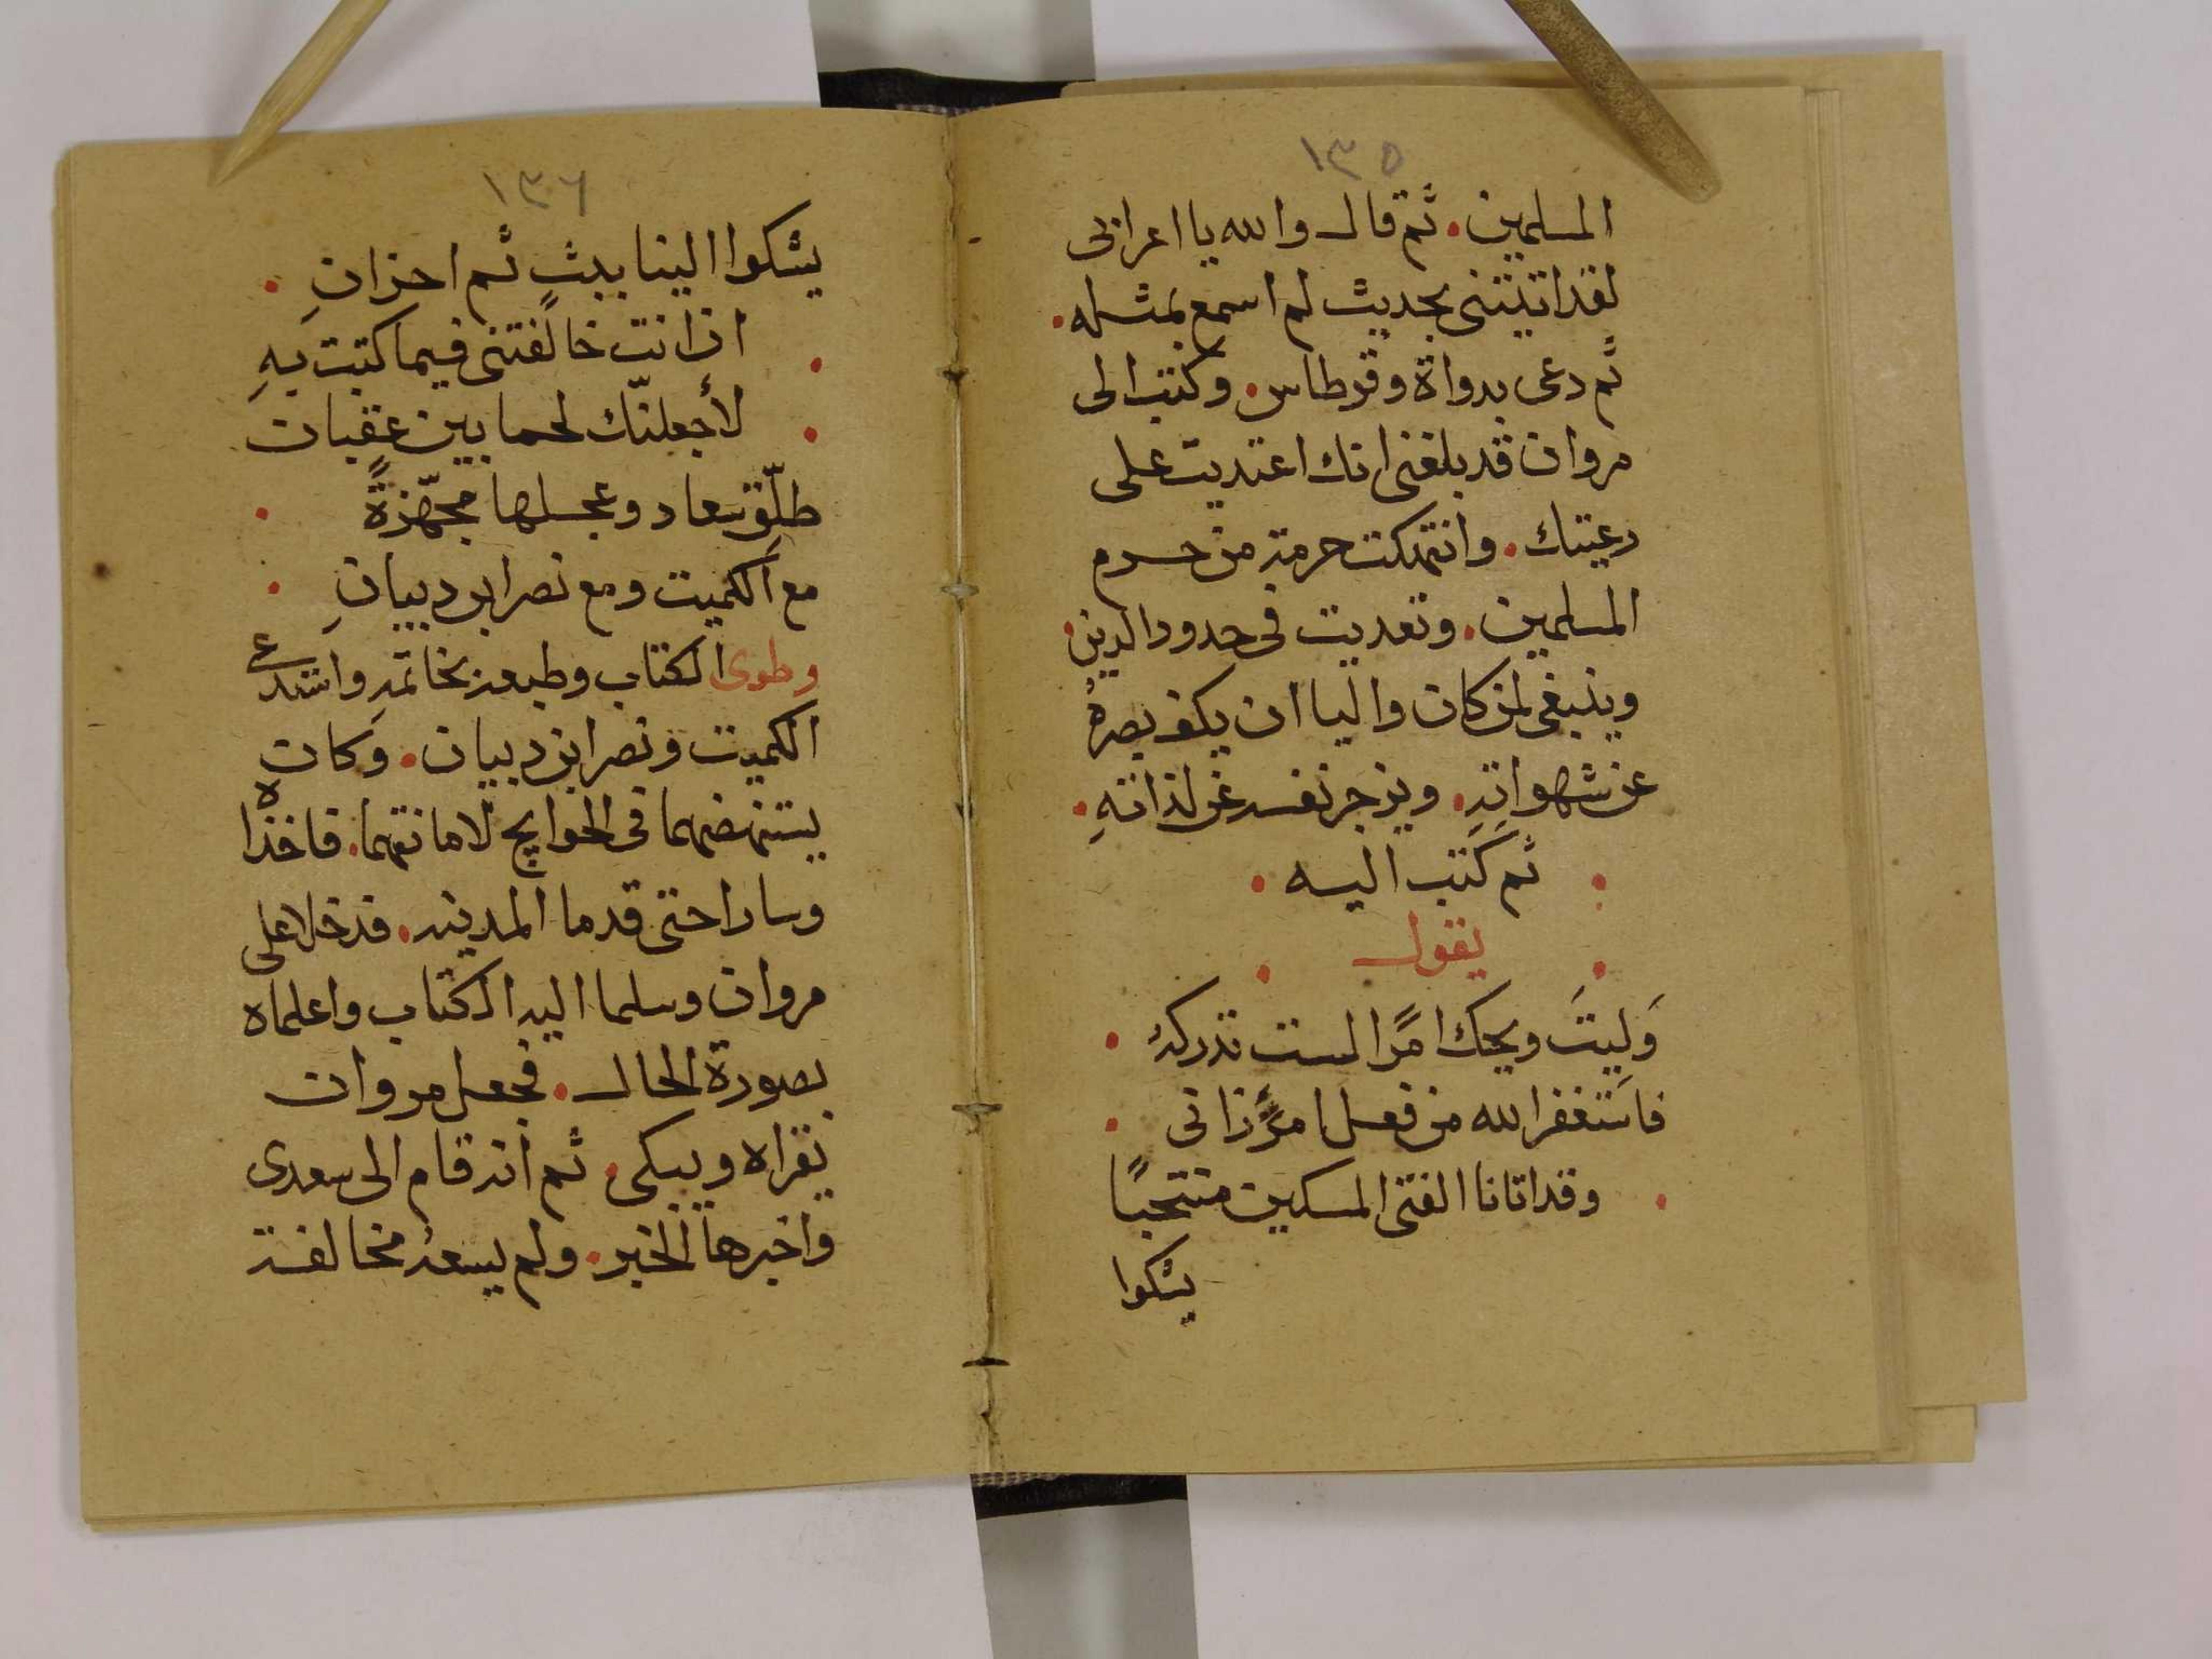 ١٣٥
المسلمين. ثم قال والله يا اعرابى
لقد اتيتنى بحديث لم اسمع بمثله.
ثم دعى بدواة وقرطاس. وكتب الى
مروان قد بلغنى انك اعتديت على
رعيتك. وانتهكت حرمة من حرم
المسلمين. وتعديت فى حدود الدين.
وينبغى لمن كان واليا ان يكف بصره
عن شهواته. ويزجر نفسه عن لذاته.
ثم كتب اليه
يقول
وَلِيتَ ويحك امرًا لست تدركه
فاستغفر الله من فعل امرئٍ زانى
وقد اتانا الفتى المسكين منتحبًا
يشكوا
١٣٦
يشكوا الينا ببثٍ ثم احزانِ
ان انت خالفتنى فيما كتبت بهِ
لأجعلنّك لحما بين عقبان
طلّق سعاد وعجلها مجهّزةً
مع الكميت ومع نصر ابن دبيانِ
وطوى الكتاب وطبعه بخاتمه واستدعى
الكميت ونصر ابن دبيان. وكان
يستنهضهما فى الحوايج لامانتهما. فاخذاه
وسارا حتى قدما المدينه. فدخلا على
مروان وسلما اليه الكتاب واعلماه
بصورة الحال. فجعل مروان
يقراه ويبكى. ثم انه قام الى سعدى
واخبرها الخبر. ولم يسعه مخالفة